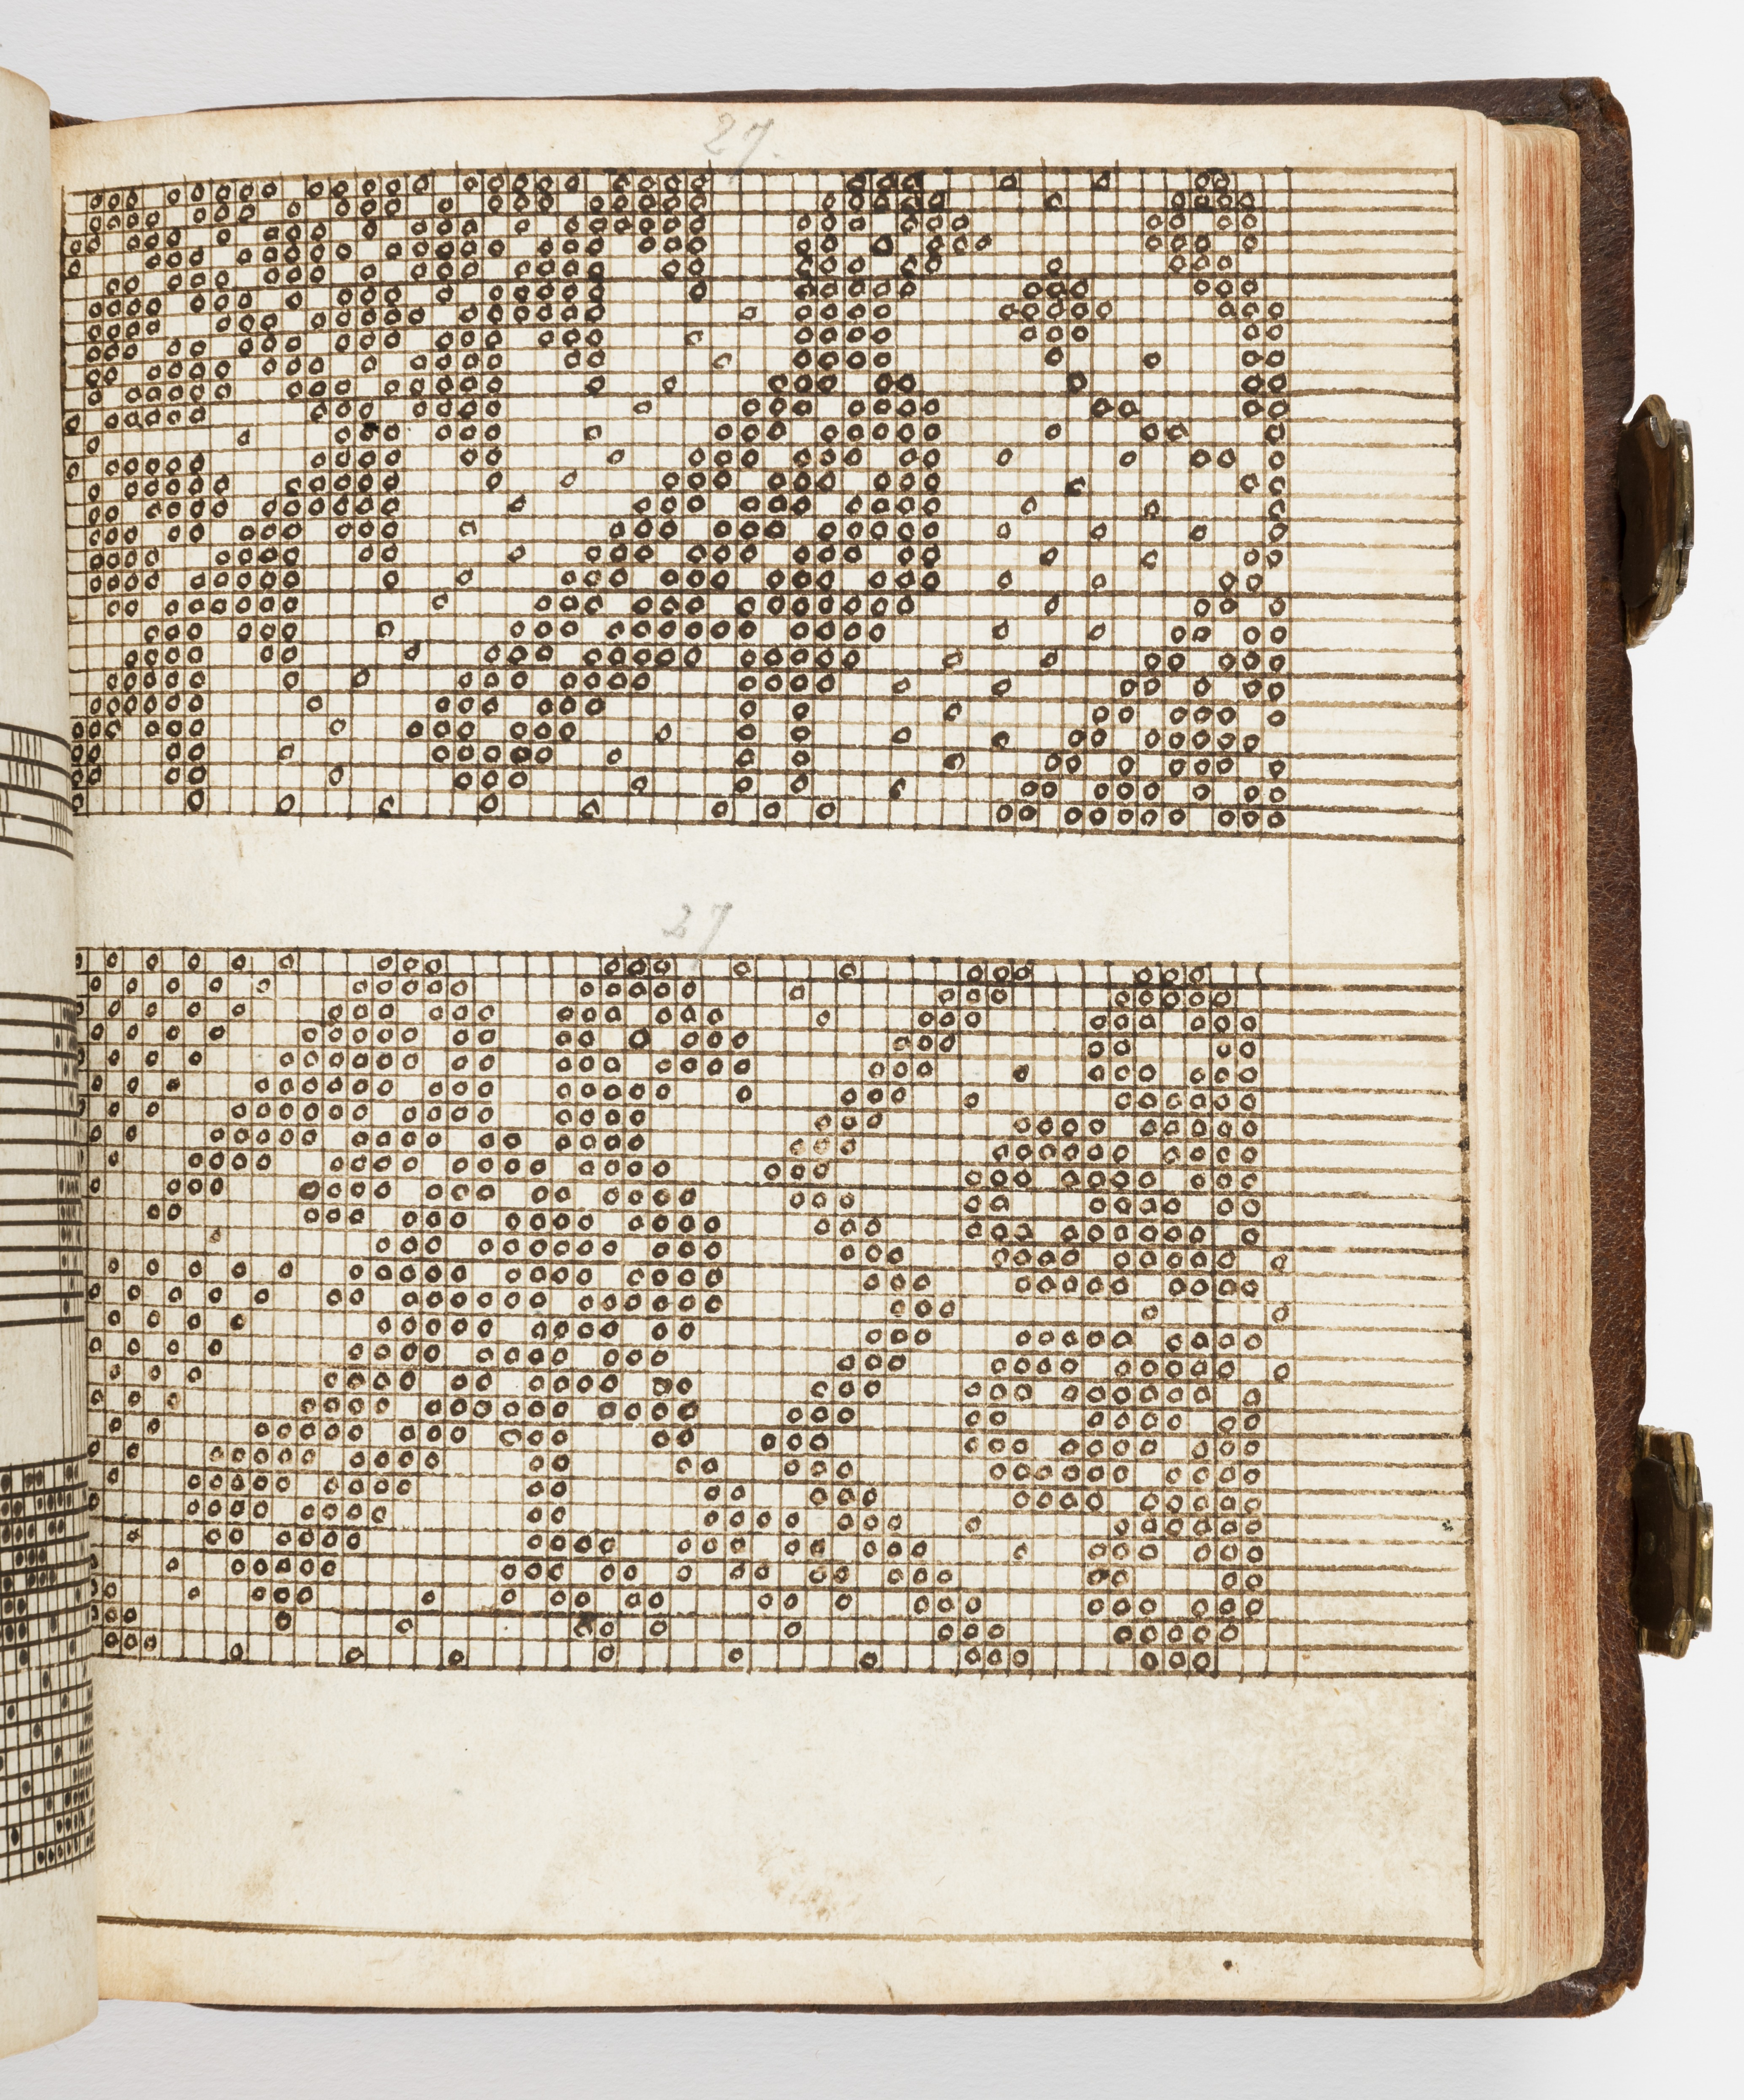 27.
27